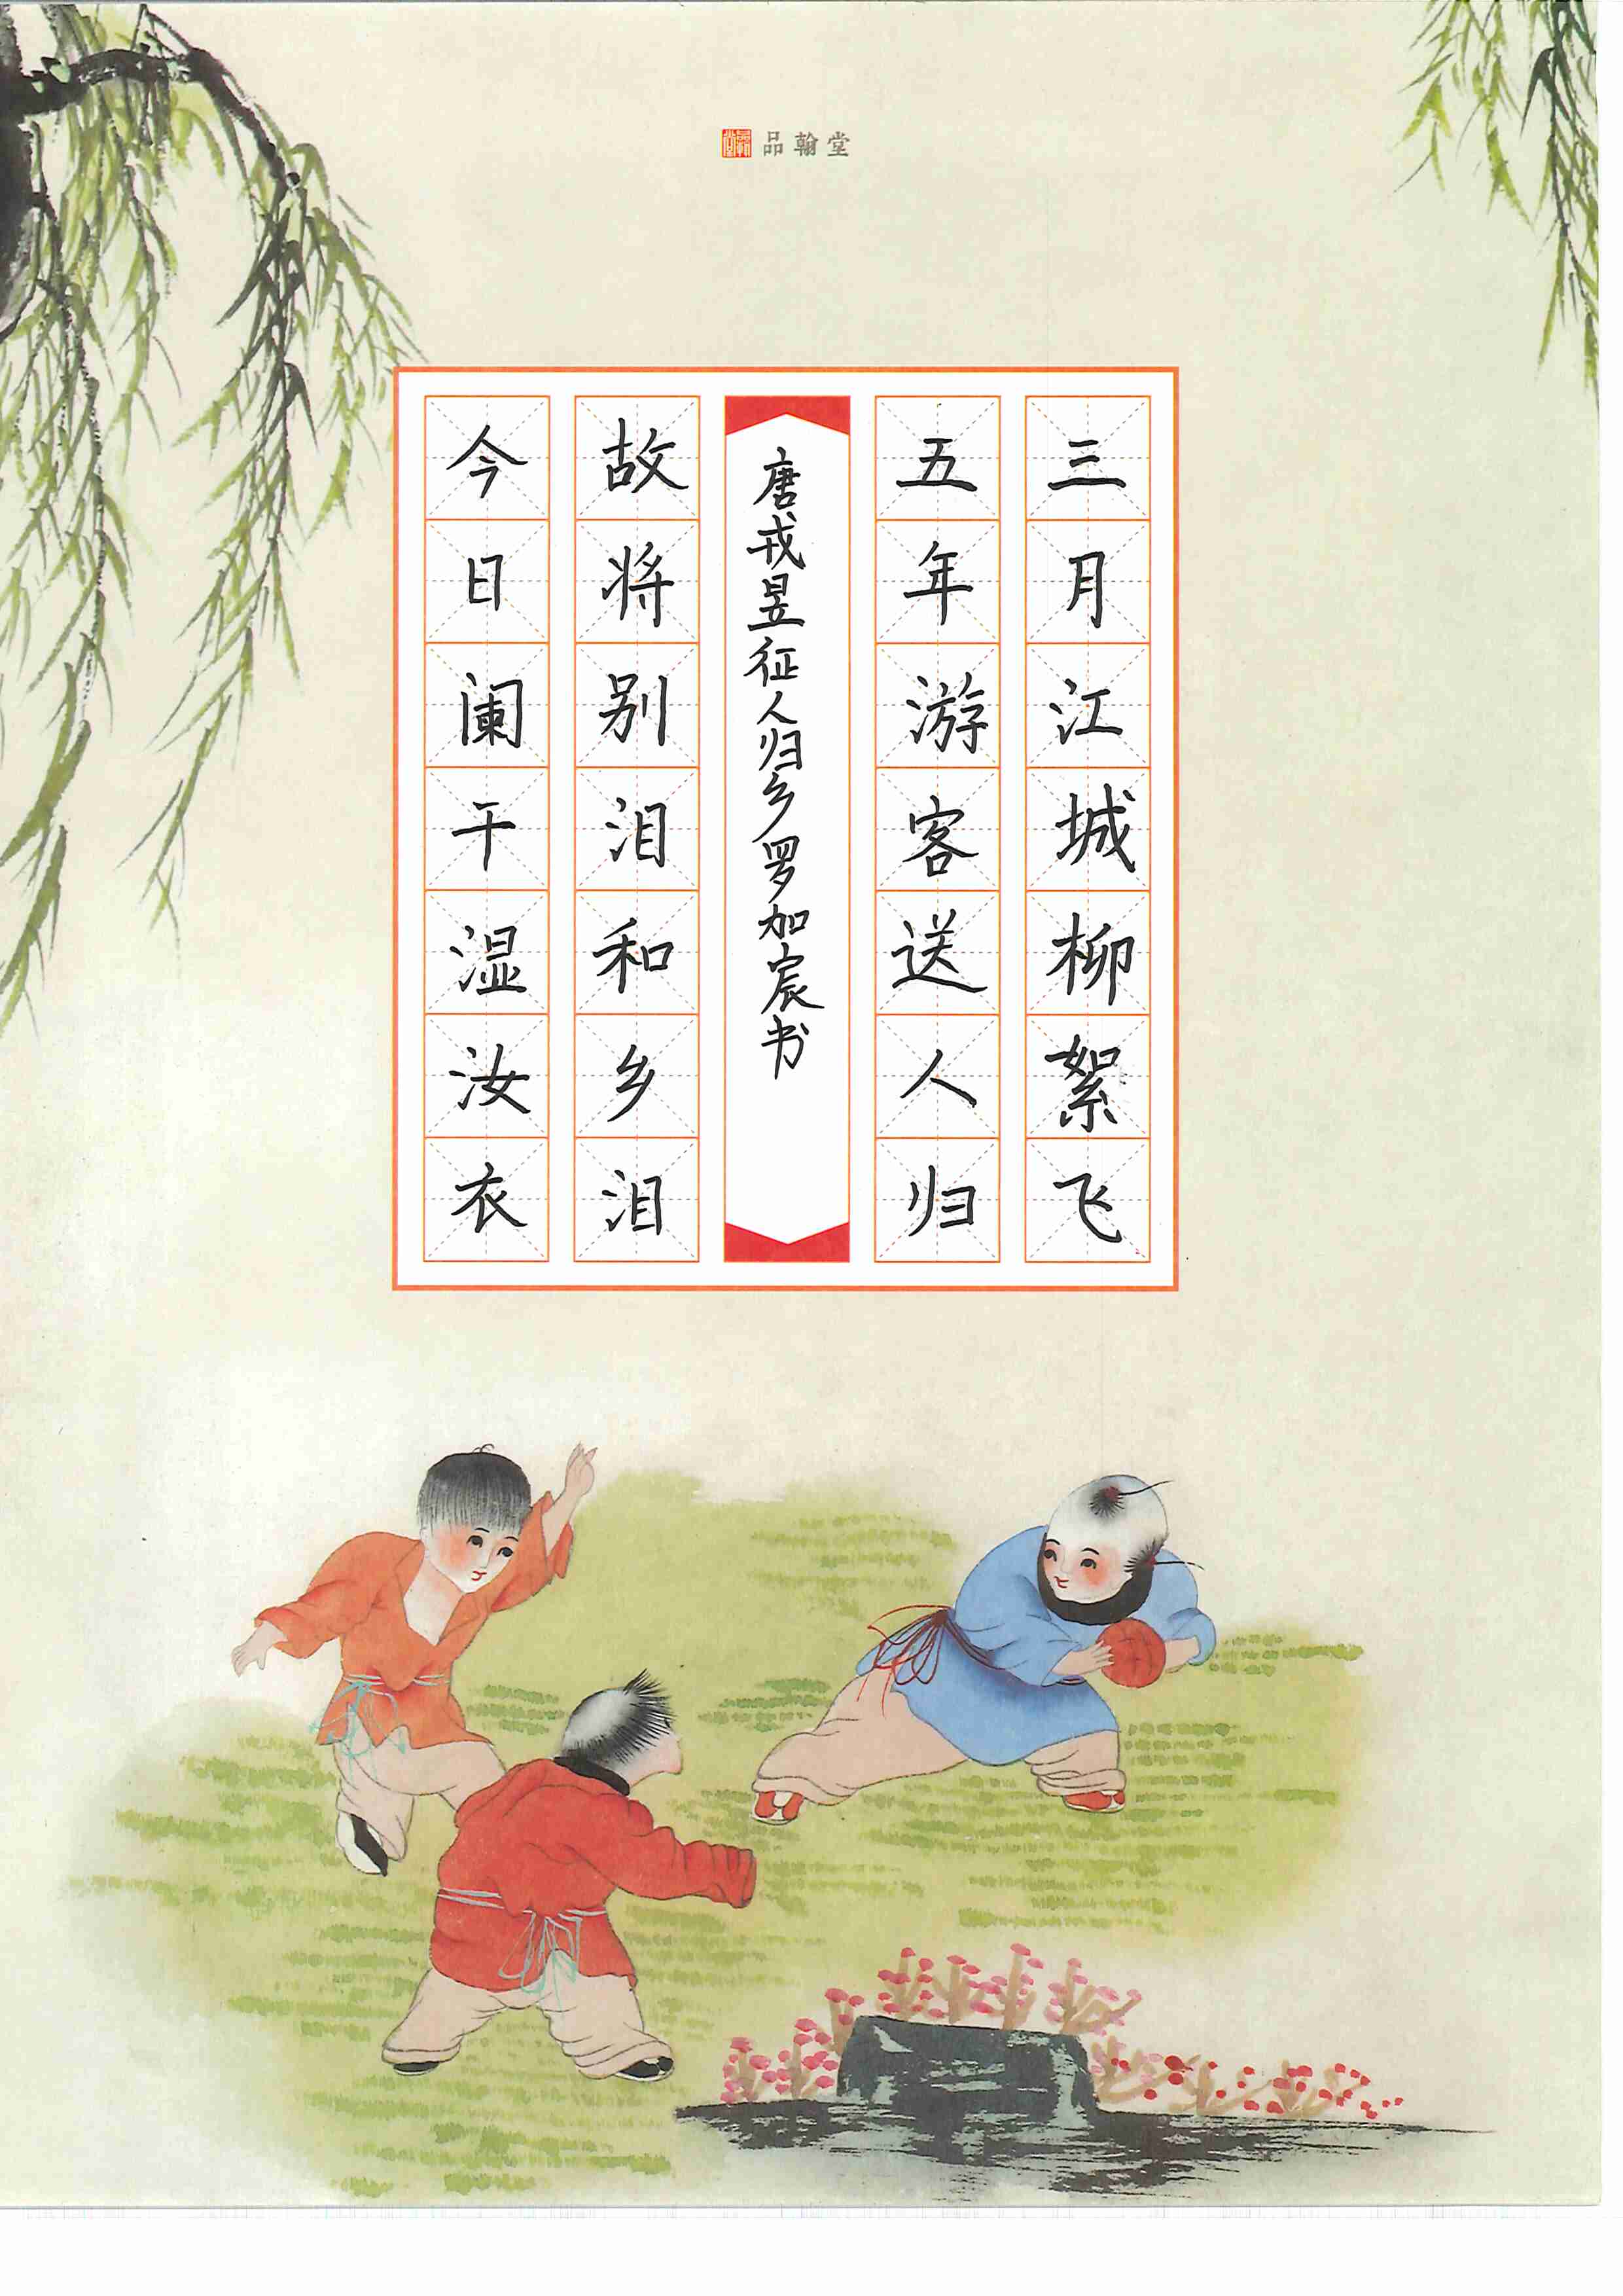 品翰堂
三月江城柳絮飞
五年游客送人归
唐戎昱征人归乡罗加宸书
故将别泪和乡泪
今日阑干湿汝衣